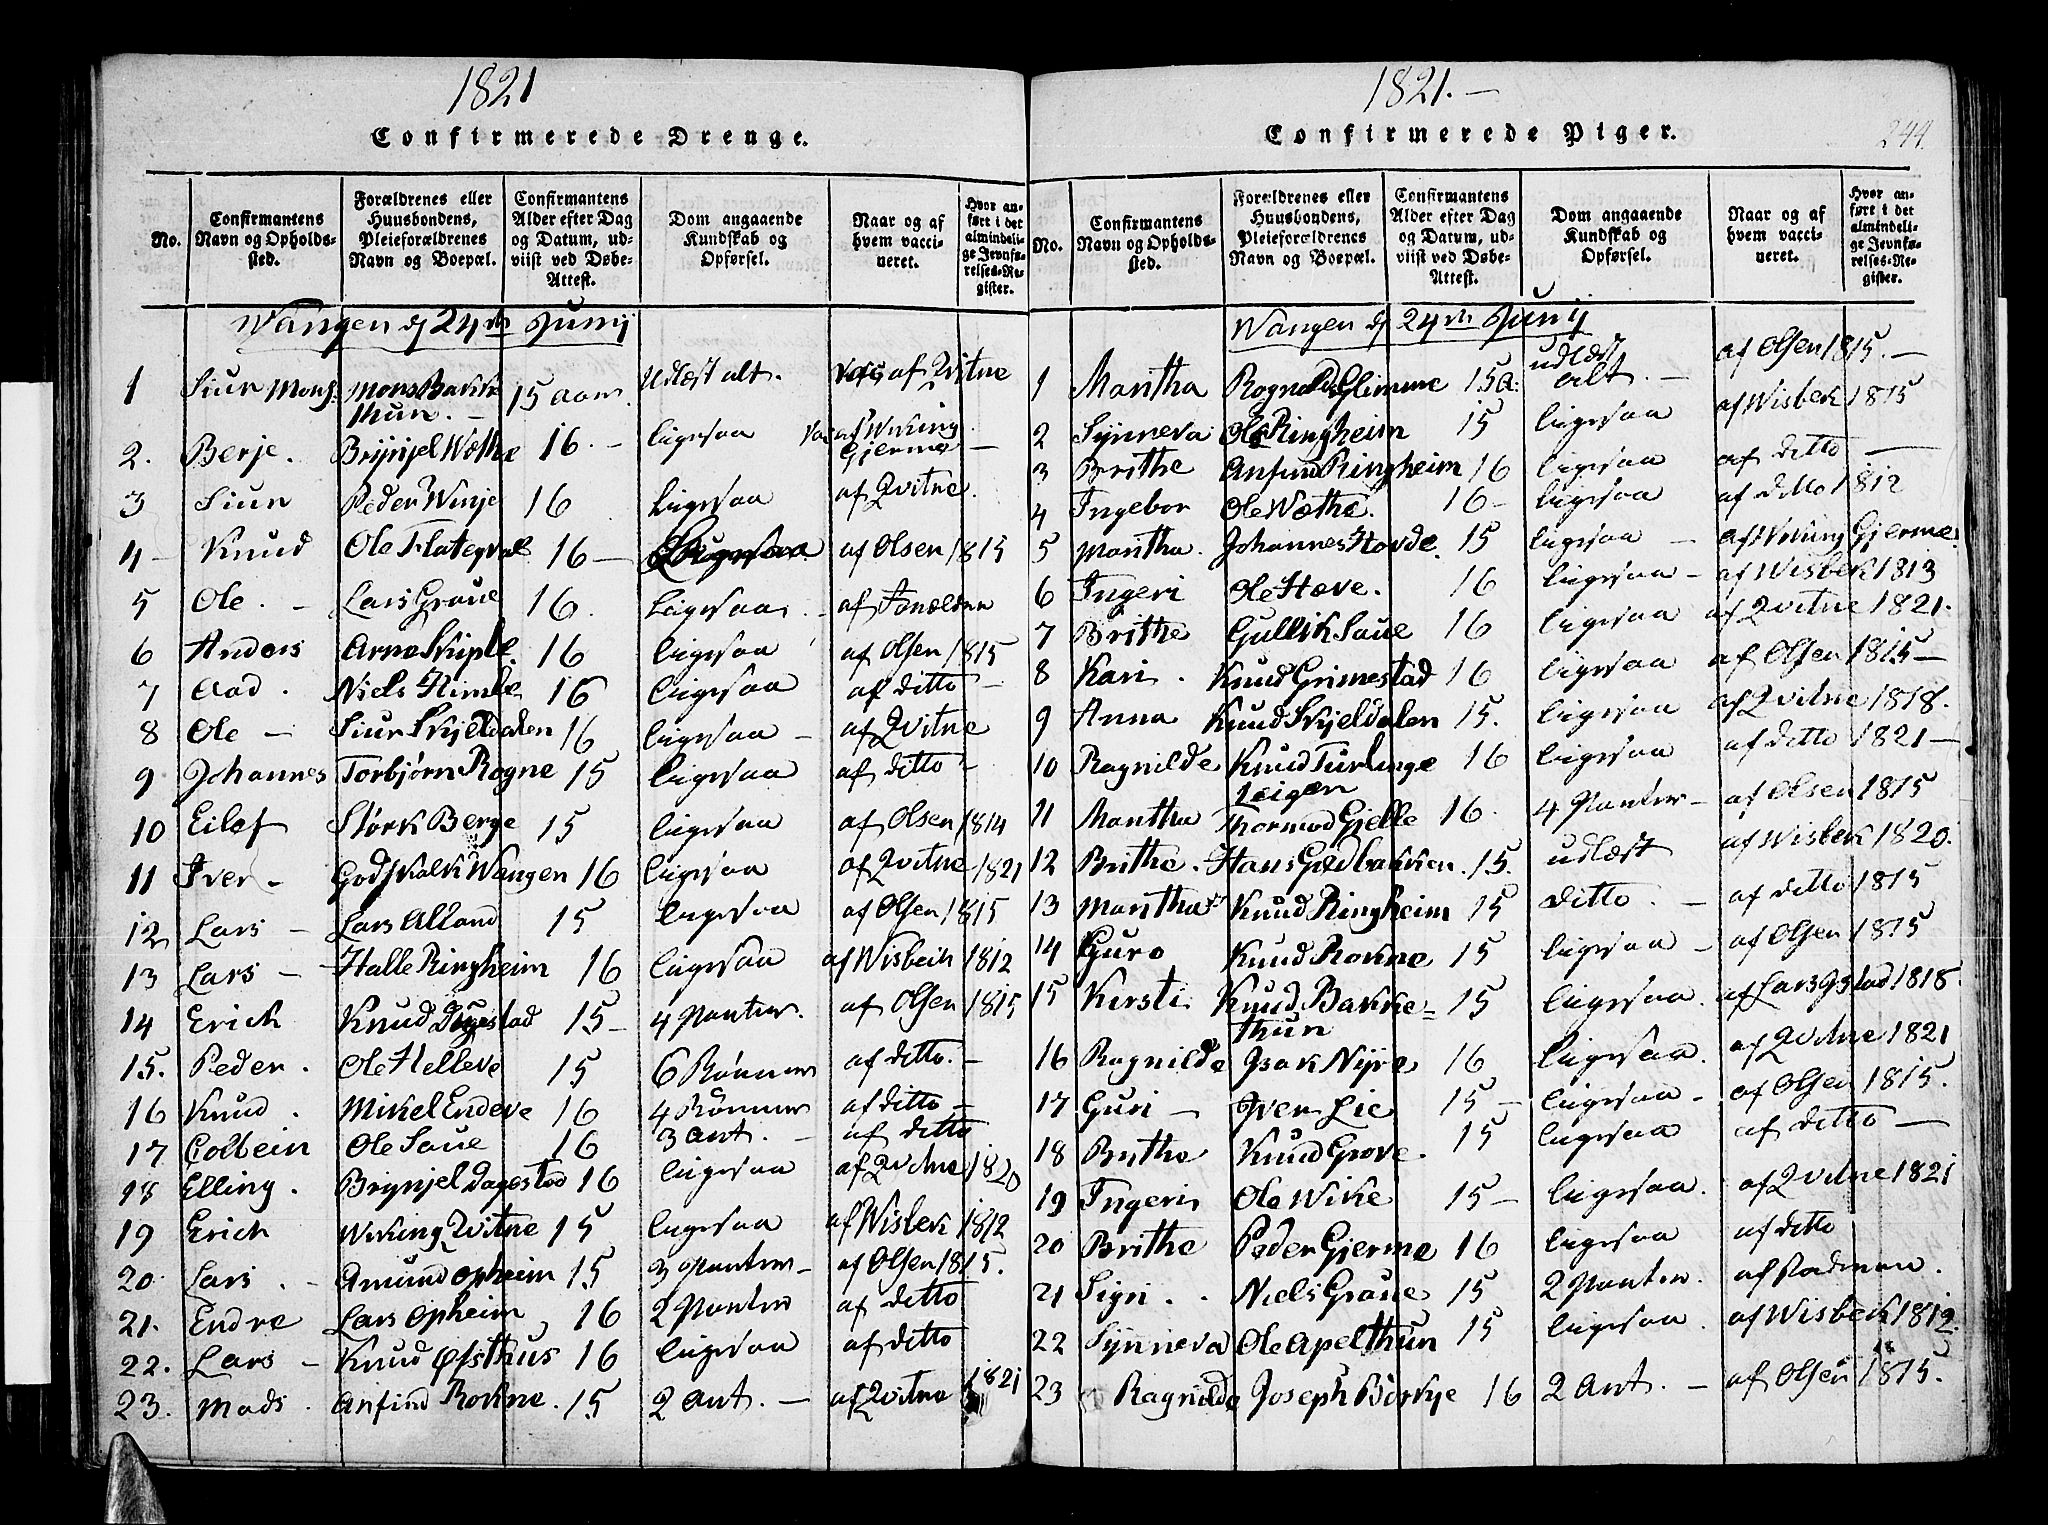 1821
Confirmerede Drenge.
No.
Confirmantens
Navn og Opholds-
sted.
Forældrenes eller
Huusbondens,
Pleieforældrenes
Navn og Boepæl.
Confirmantens
Alder efter Dag
og Datum, ud-
viist ved Døbe-
Attest.
Dom angaaende
Kundskab og
Opførsel.
Naar og af
hvem vacci-
neret.
Hvor an-
ført i det
almindeli-
ge Jevnfø-
relses-Re-
gister.
Wangen d 24de Junij
1 Siur Mons. Mons Bakke 15 aar. Udlæst alt. Vac af Qvitne
thun.
2. Berje. Brynjel Wæthe 16. ligesaa Vac af Wiking
Gjerme
3 Siur Peder Winje 16 Ligesaa af Qvitne.
4 Knud Ole Flategval 16 Ligesaa af Olsen 1815
5 Ole. Lars Graue 16. Ligesaa. af
6 Anders Arne Skiple. 16 ligesaa af Olsen 1815
7 Aad. Niels Himle 16 ligesaa af ditto
8 Ole Siur Skjeldalen 16 ligesaa af Qvitne
9 Johannes Torbjørn Rogne 15 ligesaa af ditto
10 Eilef Størk Berge 15 ligesaa af Olsen 1814
11 Iver Godskalk Wangen 16 ligesaa af Qvitne 1821
12 Lars Lars Alland 15 ligesaa af Olsen 1815
13 Lars Halle Ringheim 16 ligesaa af Wisbek 1812
14 Erich Knud Dygestad 15 4 Panter. af Olsen 1815
15. Peder. Ole Helleve 15 6 Bønner af ditto.
16 Knud. Mikel Endeve 16 4 Bønner af ditto
17 Colbein Ole Saue 16 3 Ant. af ditto
18 Elling. Brynjel Dagestad 16 ligesaa af Qvitne 1820
19 Erich Wiking Qvitne 15 ligesaa af Wisbek 1812
20 Lars. Amund Opheim 15 3 Panter af Olsen 1815.
21. Endre Lars Opheim 16 2 Panter af ditto
22. Lars Knud Øfsthus 16 ligesaa af ditto
23. Mads. Anfind Rokne. 15 2 Ant. af Qvitne 1821
1821.
Confirmerede Piger.
244.
No.
Confirmantens
Navn og Opholds-
sted.
Forældrenes eller
Huusbondens,
Pleieforældrenes
Navn og Boepæl.
Confirmantens
Alder efter Dag
og Datum, ud-
viist ved Døbe-
Attest.
Dom angaaende
Kundskab og
Opførsel.
Naar og af
hvem vacci-
neret.
Hvor an-
ført i det
almindeli-
ge Jevnfø-
relses-Re-
gister.
Wangen d 24de Junij
1 Mantha Rognald Glimme 15 a: udlæst alt. af Olsen 1815.
2 Synneva Ole Ringheim 15 ligesaa af Wisbek 1815
3 Brithe Anfind Ringheim 16 ligesaa af ditto
4 Ingebor Ole Wæthe. 16 ligesaa af ditto 1812
5 Mantha. Johannes Hovde. 15 ligesaa af Wiking Gjerme.
6 Ingeri Ole Hæve. 16 ligesaa af Wisbek 1813
7 Brithe Gullik Saue 16 ligesaa af Qvitne 1821.
8 Kari. Knud Grimestad 16 ligesaa af Olsen 1815
9 Anna Knud Skjeldalen 15. ligesaa af Qvitne 1818.
10 Ragnilde Knud Turlinge 16 ligesaa af ditto 1821
Leigen
11 Mantha Thormod Gjelle 16. 4 Panter af Olsen 1815
12 Brithe. Hans Gjedbakken. 15. udlæst af Wisbek 1820.
13 Mantha Knud Ringheim 15 ditto. af ditto 1815
14 Guro Knud Rokne 15 ligesaa af Olsen 1815
15 Kersti Knud Bakke- 15 ligesaa. af Lars Gstad 1818.
thun
16 Ragnilde Isak Nyre 16 ligesaa. af Qvitne 1821
17 Guri Iver Lie 15 ligesaa af Olsen 1815.
18 Brithe Knud Grove. 15 ligesaa af ditto
19 Ingeri Ole Wike 15 ligesaa. af Qvitne 1821
20 Brithe Peder Gjerme 16 ligesaa af ditto
21 Sigri. Niels Graue 15 2 Panter. af Radman.
22 Synneva Ole Apelthun 15 ligesaa. af Wisbek 1812.
23 Ragnilde Joseph Børkje 16 2 Ant. af Olsen 1815.